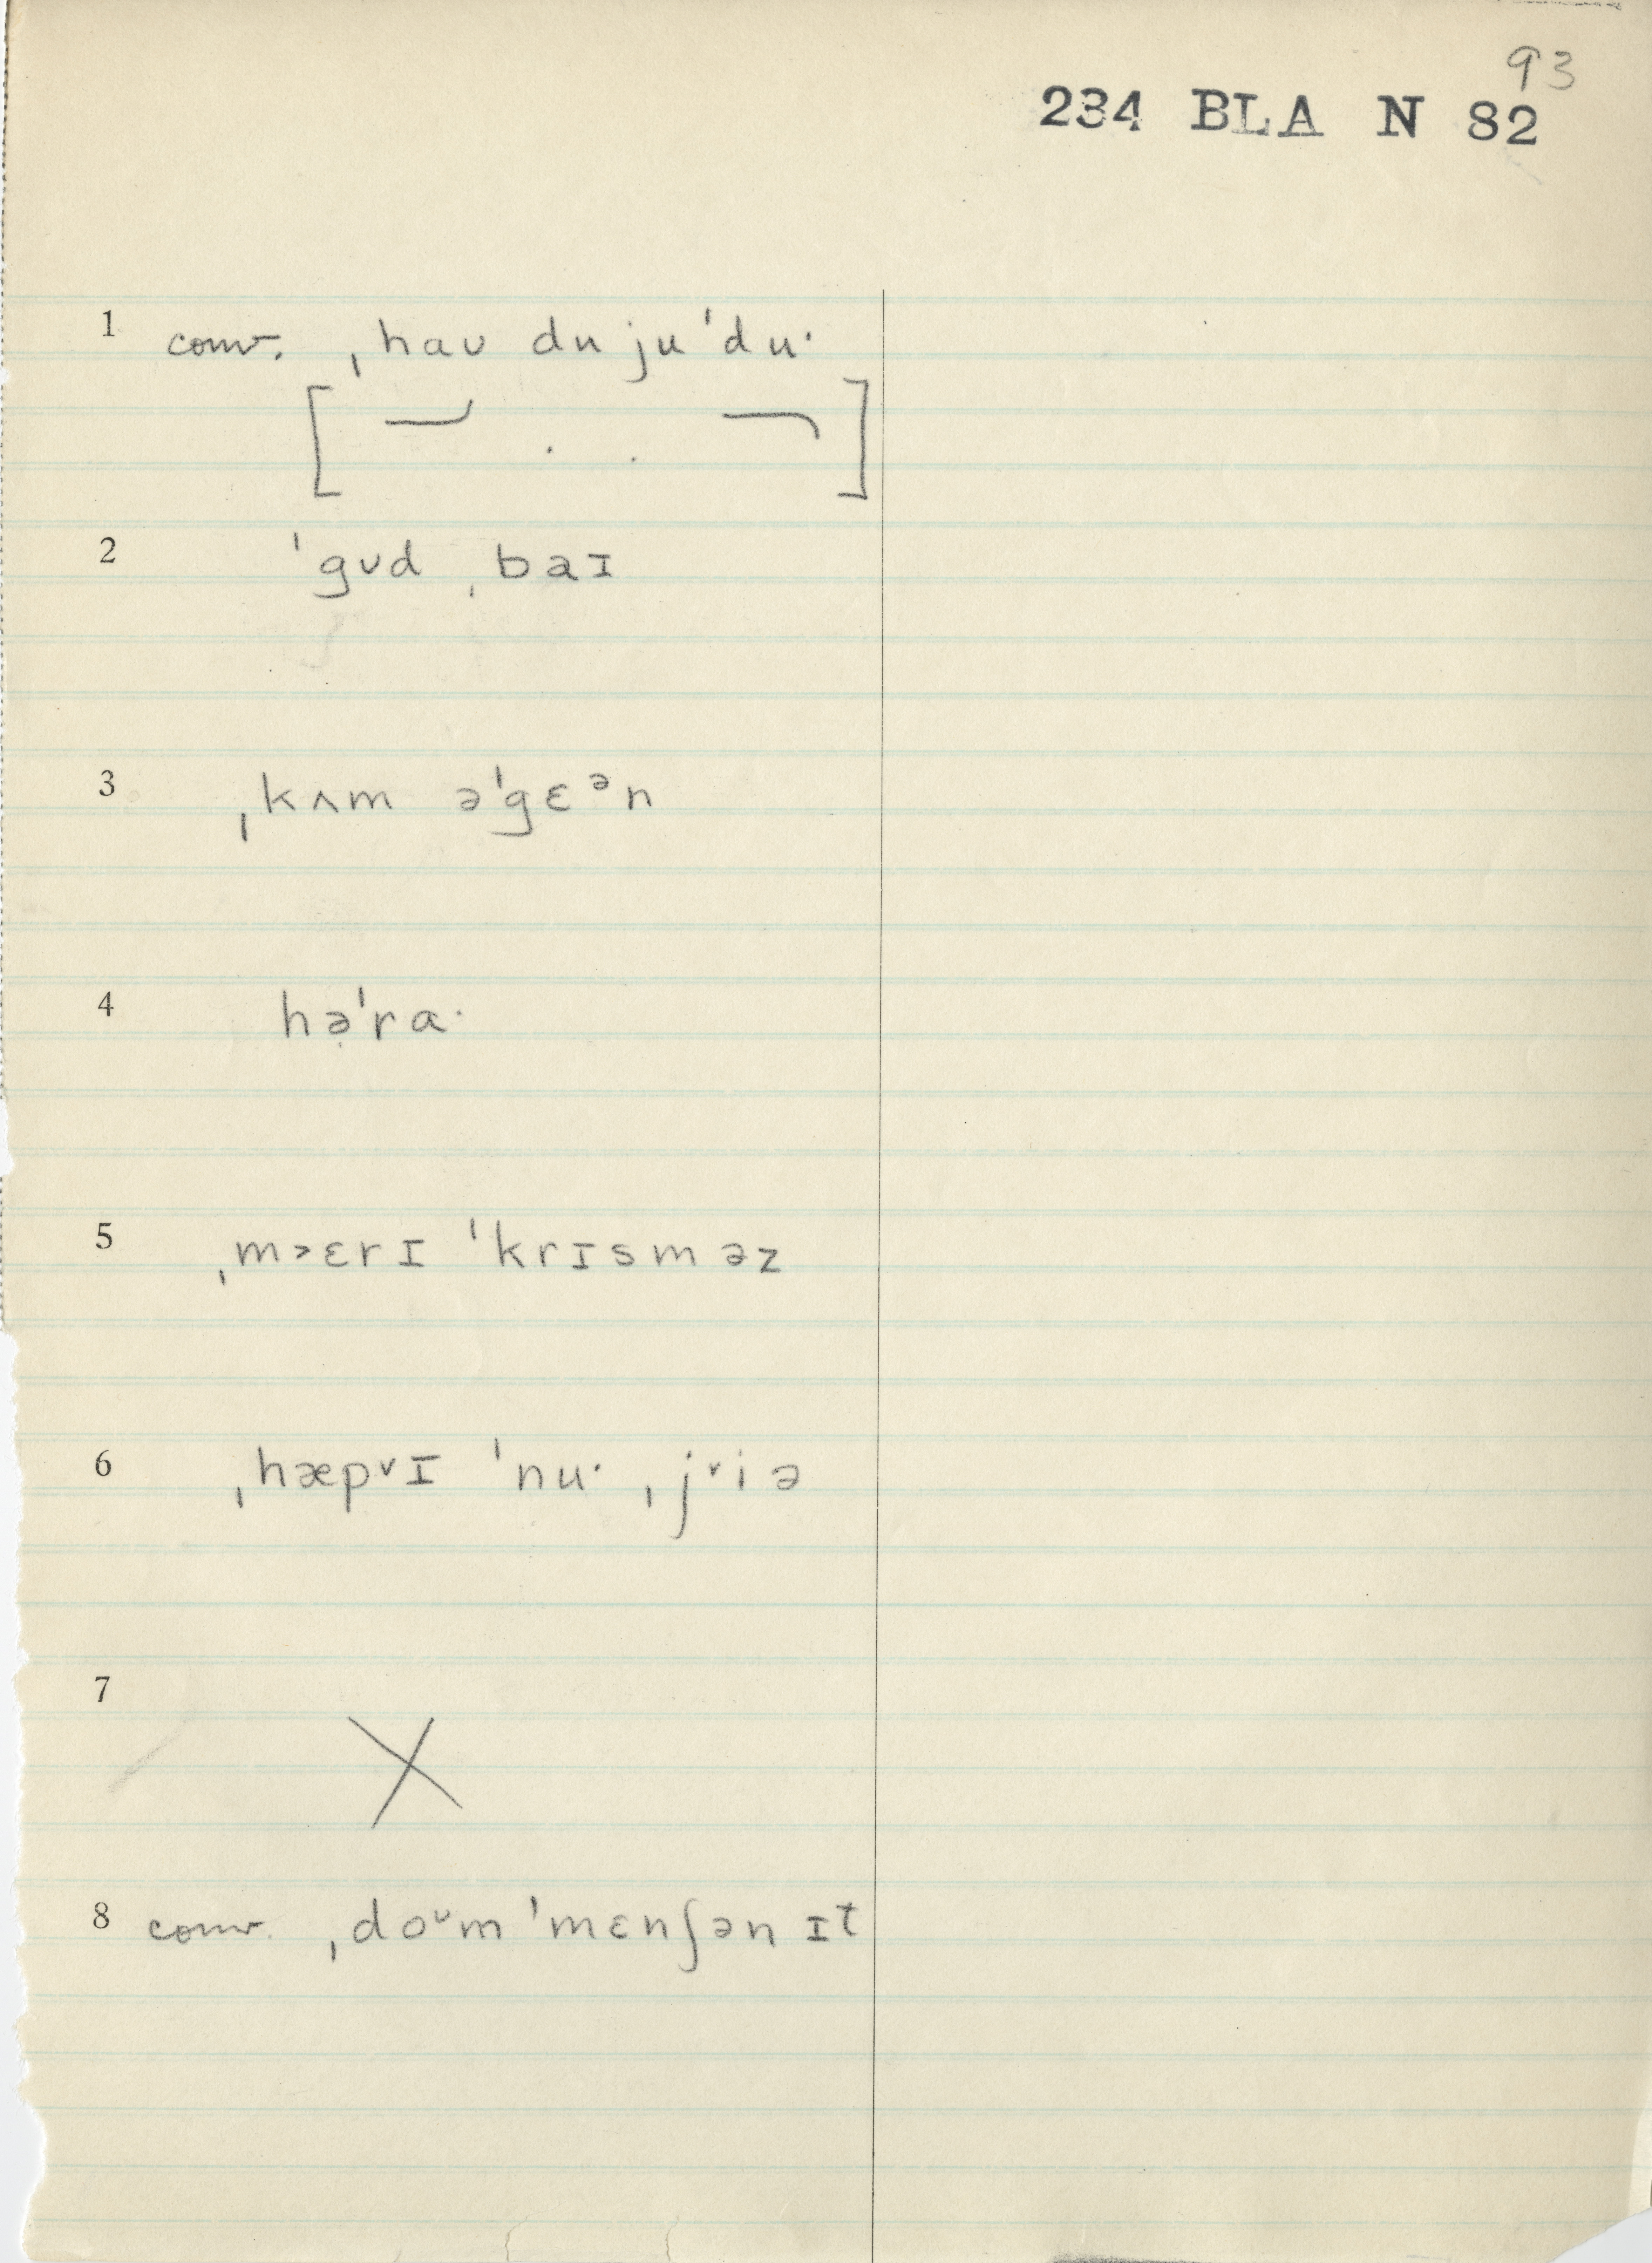 93
234 BLA N 82
1 conv. ˌhaʊ du ju ˈduˑ
2 ˈgʊd ˌbaɪ
3 ˌkʌm əˈgɛᵊn
4 hə̣ˈraˑ
5 ˌm˃ɛrɪ ˈkrɪsməz
6 ˌhæp˅ɪ ˈnuˑ ˌj˅iə
7 X
8 conv. ˌdoᶷm ˈmɛnʃən ɪt